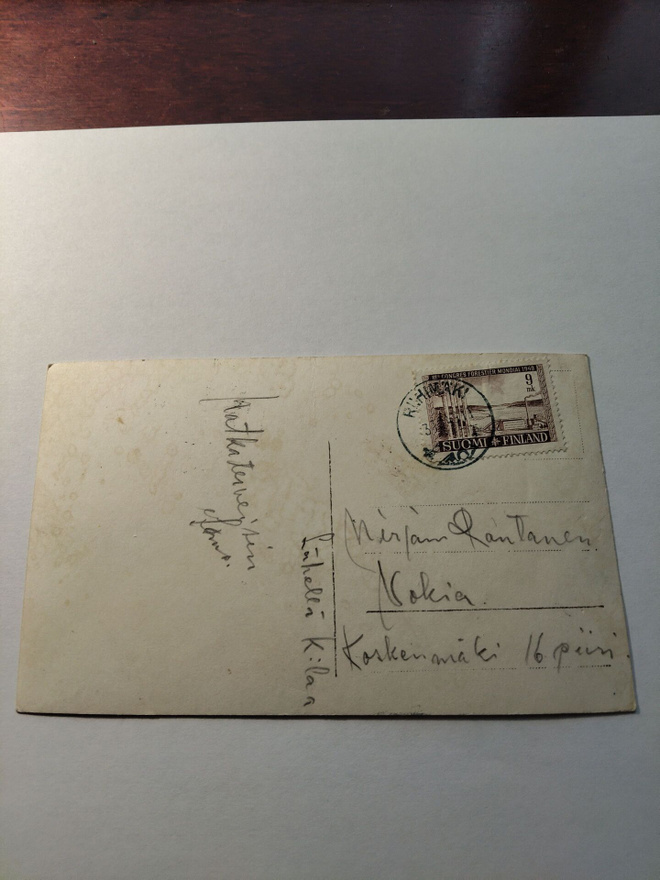 Matkaterveisin
Lähellä Kilaa
CONGRES FORESTIER MONDIAL 1949
9
mk
SUOMI FINLAND
RIIHIMÄKI
Mirjam Rantanen
Nokia.
Koskenmäki 16 piiri.